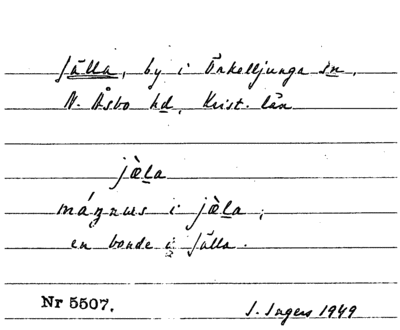 Jälla, by i Örkelljunga sn,
N. Åsbo hd, Krist. län
jæ̀la
máŋnus i jæ̀la;
en bonde i Jälla.
Nr 5507. I. Ingers 1949